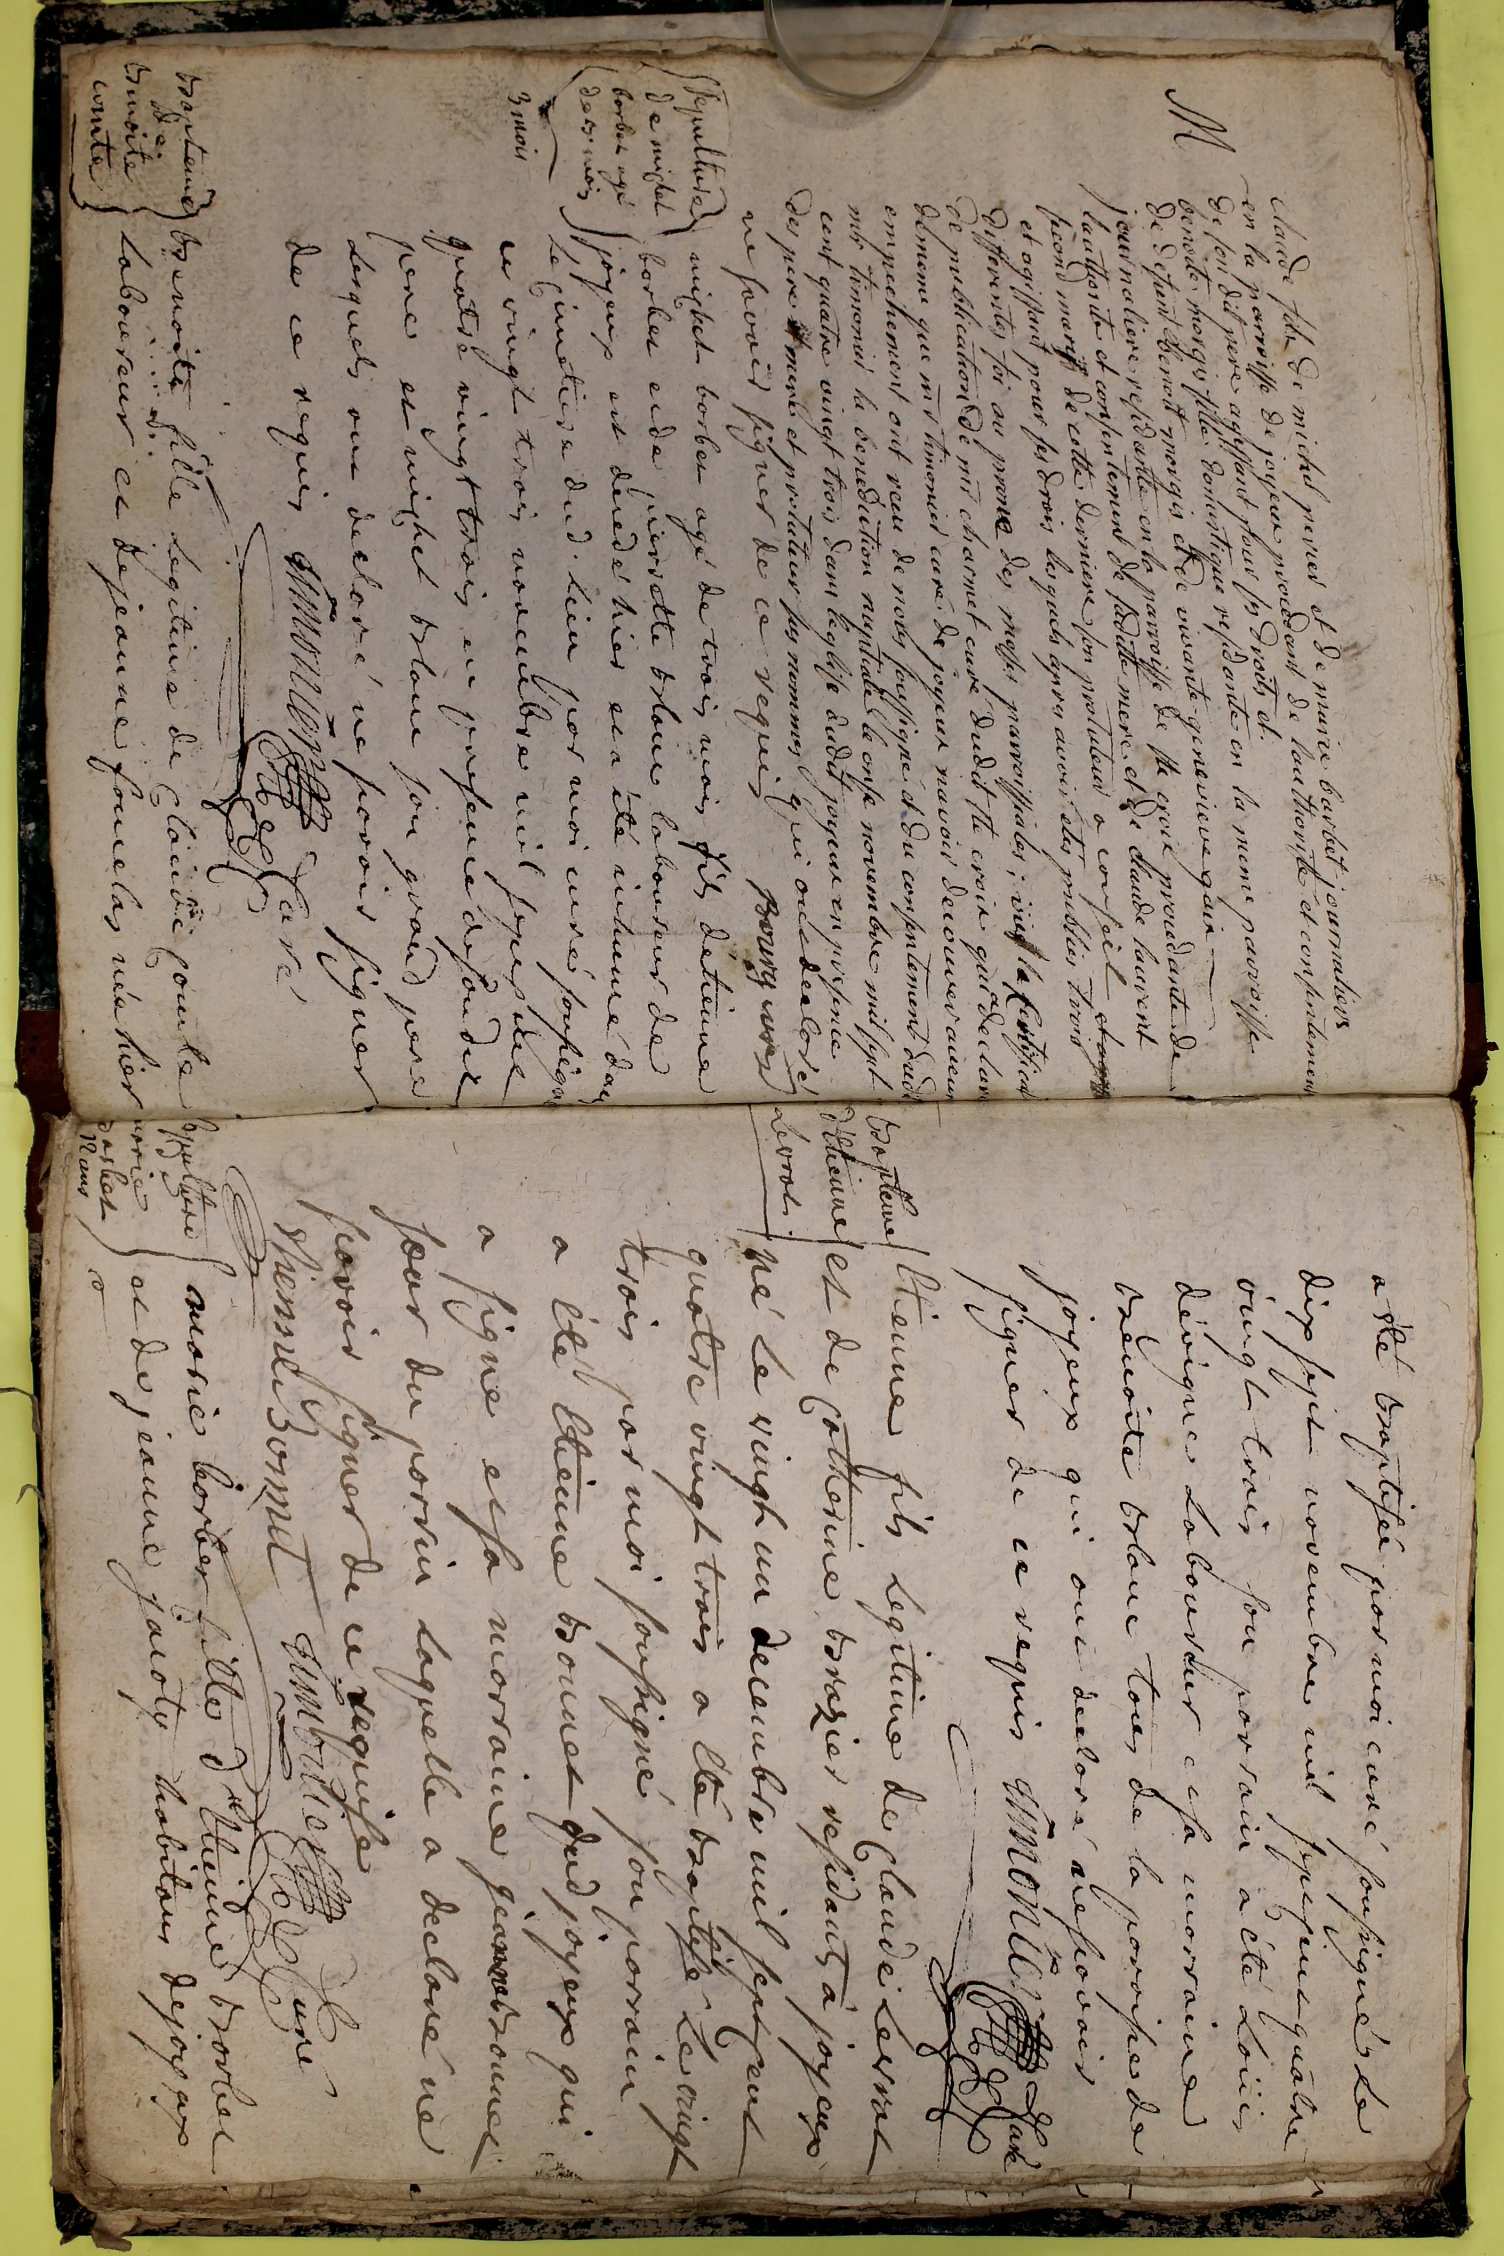 M
claude fils de michel peres et de marie barbet journaliers
en la parroisse de joyeux procedant de lauthorité et consentement
de son dit pere agissant pour ses droits et
benoite morgis fille domestique residante en la meme parroisse
de defunt benoit morgis et de vivante genevieve
journaliere residante en la parroisse de ste croix procedante de
lauthorité et consentement de laditte mere et de claude laurent
second mary de cette derniere son protuteur a conseil
et agissant pour ses drois lesquels apres avoir etes publiés trois
differentes fois au prone des messes parroissiales; vu le certificat
de publication de mr charmet curé dudit ste croix qui declare
de meme que mr timonier curé de joyeux navoir decouvert aucun
empechement ont recu de nous soussigné et du consentement dudt
mr timonier la benediction nuptiale le onze novembre mil sept
cent quatre vingt trois dans leglise dudit joyeux en presence
des pere et mere et protuteur sus nommes qui ont declaré
ne savoir signer de ce requis
sepulture
de michel
borbet agé
de 3 mois
3 mois
michel borbet agé de trois mois fils detienne
borbet et de pierrette blanc laboureur de
joyeux est décédé hier et a été inhumé dans
le cimetiere dud. lieu par moi curé soussigné
ce vingt trois novembre mil sept cent
quatre vingt trois en presence de son dit
pere et michel blanc son grand pere
lesquels ont declaré ne savoir signer
de ce requis timonier curé
bapteme
de
benoite
comte
benoite fille legitime de claude comte
laboureur et de jeanne fonnelas née hier
a été baptisée par moi curé soussigné le
dix sept novembre mil sept cent quatre
vingt trois son parrain a été Louis
dévigne laboureur et sa marraine
benoite blanc tous de la paroisse de
joyeux qui ont declaré ne savoir
signer de ce requis timonier curé
bapteme
d'étienne
Levrat
Etienne fils legitime de claude Levrat
et de Catherine brazier residants a joyeux
né le vingt un decembre mil sept cent
quatre vingt trois a été baptisé le vingt
trois par moi soussigné son parrain
a été Etienne bonnet dud joyeux qui
a signé et sa marraine jeanne bonnet
sœur du parrain laquelle a declaré ne
savoir signer de ce requise
Etienne Bonnet timonier curé
sepulture
de
marie
borbet
12 ans
marie borbet fille d'Etienne borbet
et de jeanne jacoty habitans de joyeux